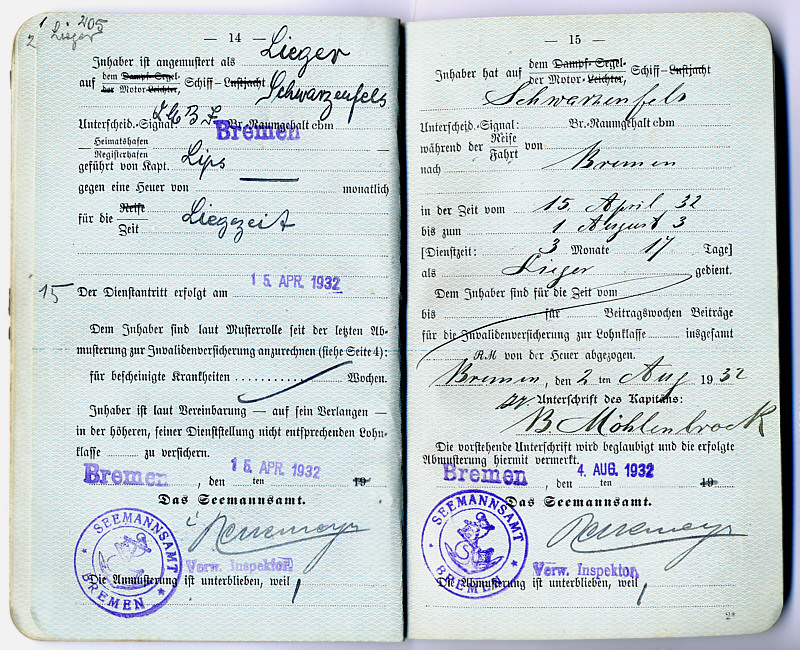 1 205
2 Lieger
— 14 —
Inhaber ist angemustert als Lieger
auf dem Dampf- Segel- Schiff - Luftjacht Schwarzenfels
der Motor-Leichter,
Unterscheid.-Signal: Br.-Raumgehalt cbm
Heimatshafen Bremen
Registerhafen
geführt von Kapt. Lips
gegen eine Heuer von — monatlich
für die Reise
Zeit Liegezeit
15 Der Dienstantritt erfolgt am 15. APR. 1932
Dem Inhaber sind laut Musterrolle seit der letzten Ab-
musterung zur Invalidenversicherung anzurechnen (siehe Seite 4):
für bescheinigte Krankheiten .......... Wochen.
Inhaber ist laut Vereinbarung — auf sein Verlangen —
in der höheren, seiner Dienststellung nicht entsprechenden Lohn-
klasse zu versichern.
Bremen, den 15. APR. 1932 ten 19
Das Seemannsamt.
Verw. Inspektor.
SEEMANNSAMT
BREMEN
Die Anmusterung ist unterblieben, weil
— 15 —
Inhaber hat auf dem Dampf- Segel- Schiff - Luftjacht
der Motor-Leichter,
Schwarzenfels
Unterscheid.-Signal: Br.-Raumgehalt cbm
während der Reise
Fahrt von
nach Bremen
in der Zeit vom 15. April 32
bis zum 1 August 3
[Dienstzeit: 3 Monate 17 Tage]
als Lieger gedient.
Dem Inhaber sind für die Zeit vom
bis für Beitragswochen Beiträge
für die Invalidenversicherung zur Lohnklasse insgesamt
RM von der Heuer abgezogen.
Bremen, den 2 ten Aug 1932
Unterschrift des Kapitäns:
B. Möhlenbrock
Die vorstehende Unterschrift wird beglaubigt und die erfolgte
Abmusterung hiermit vermerkt.
Bremen, den 4. AUG. 1932 ten 19
Das Seemannsamt.
Verw. Inspektor.
SEEMANNSAMT
BREMEN
Die Abmusterung ist unterblieben, weil
2*